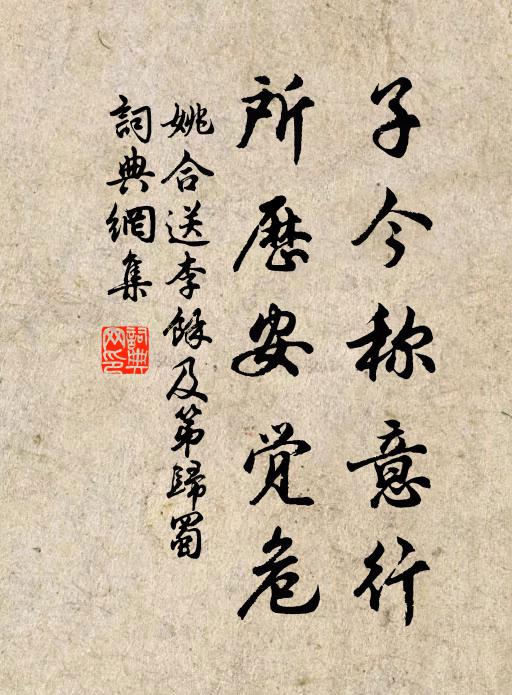 子今称意行
所历安觉危
姚合送李餘及第歸蜀
詞典網集
詞典網印